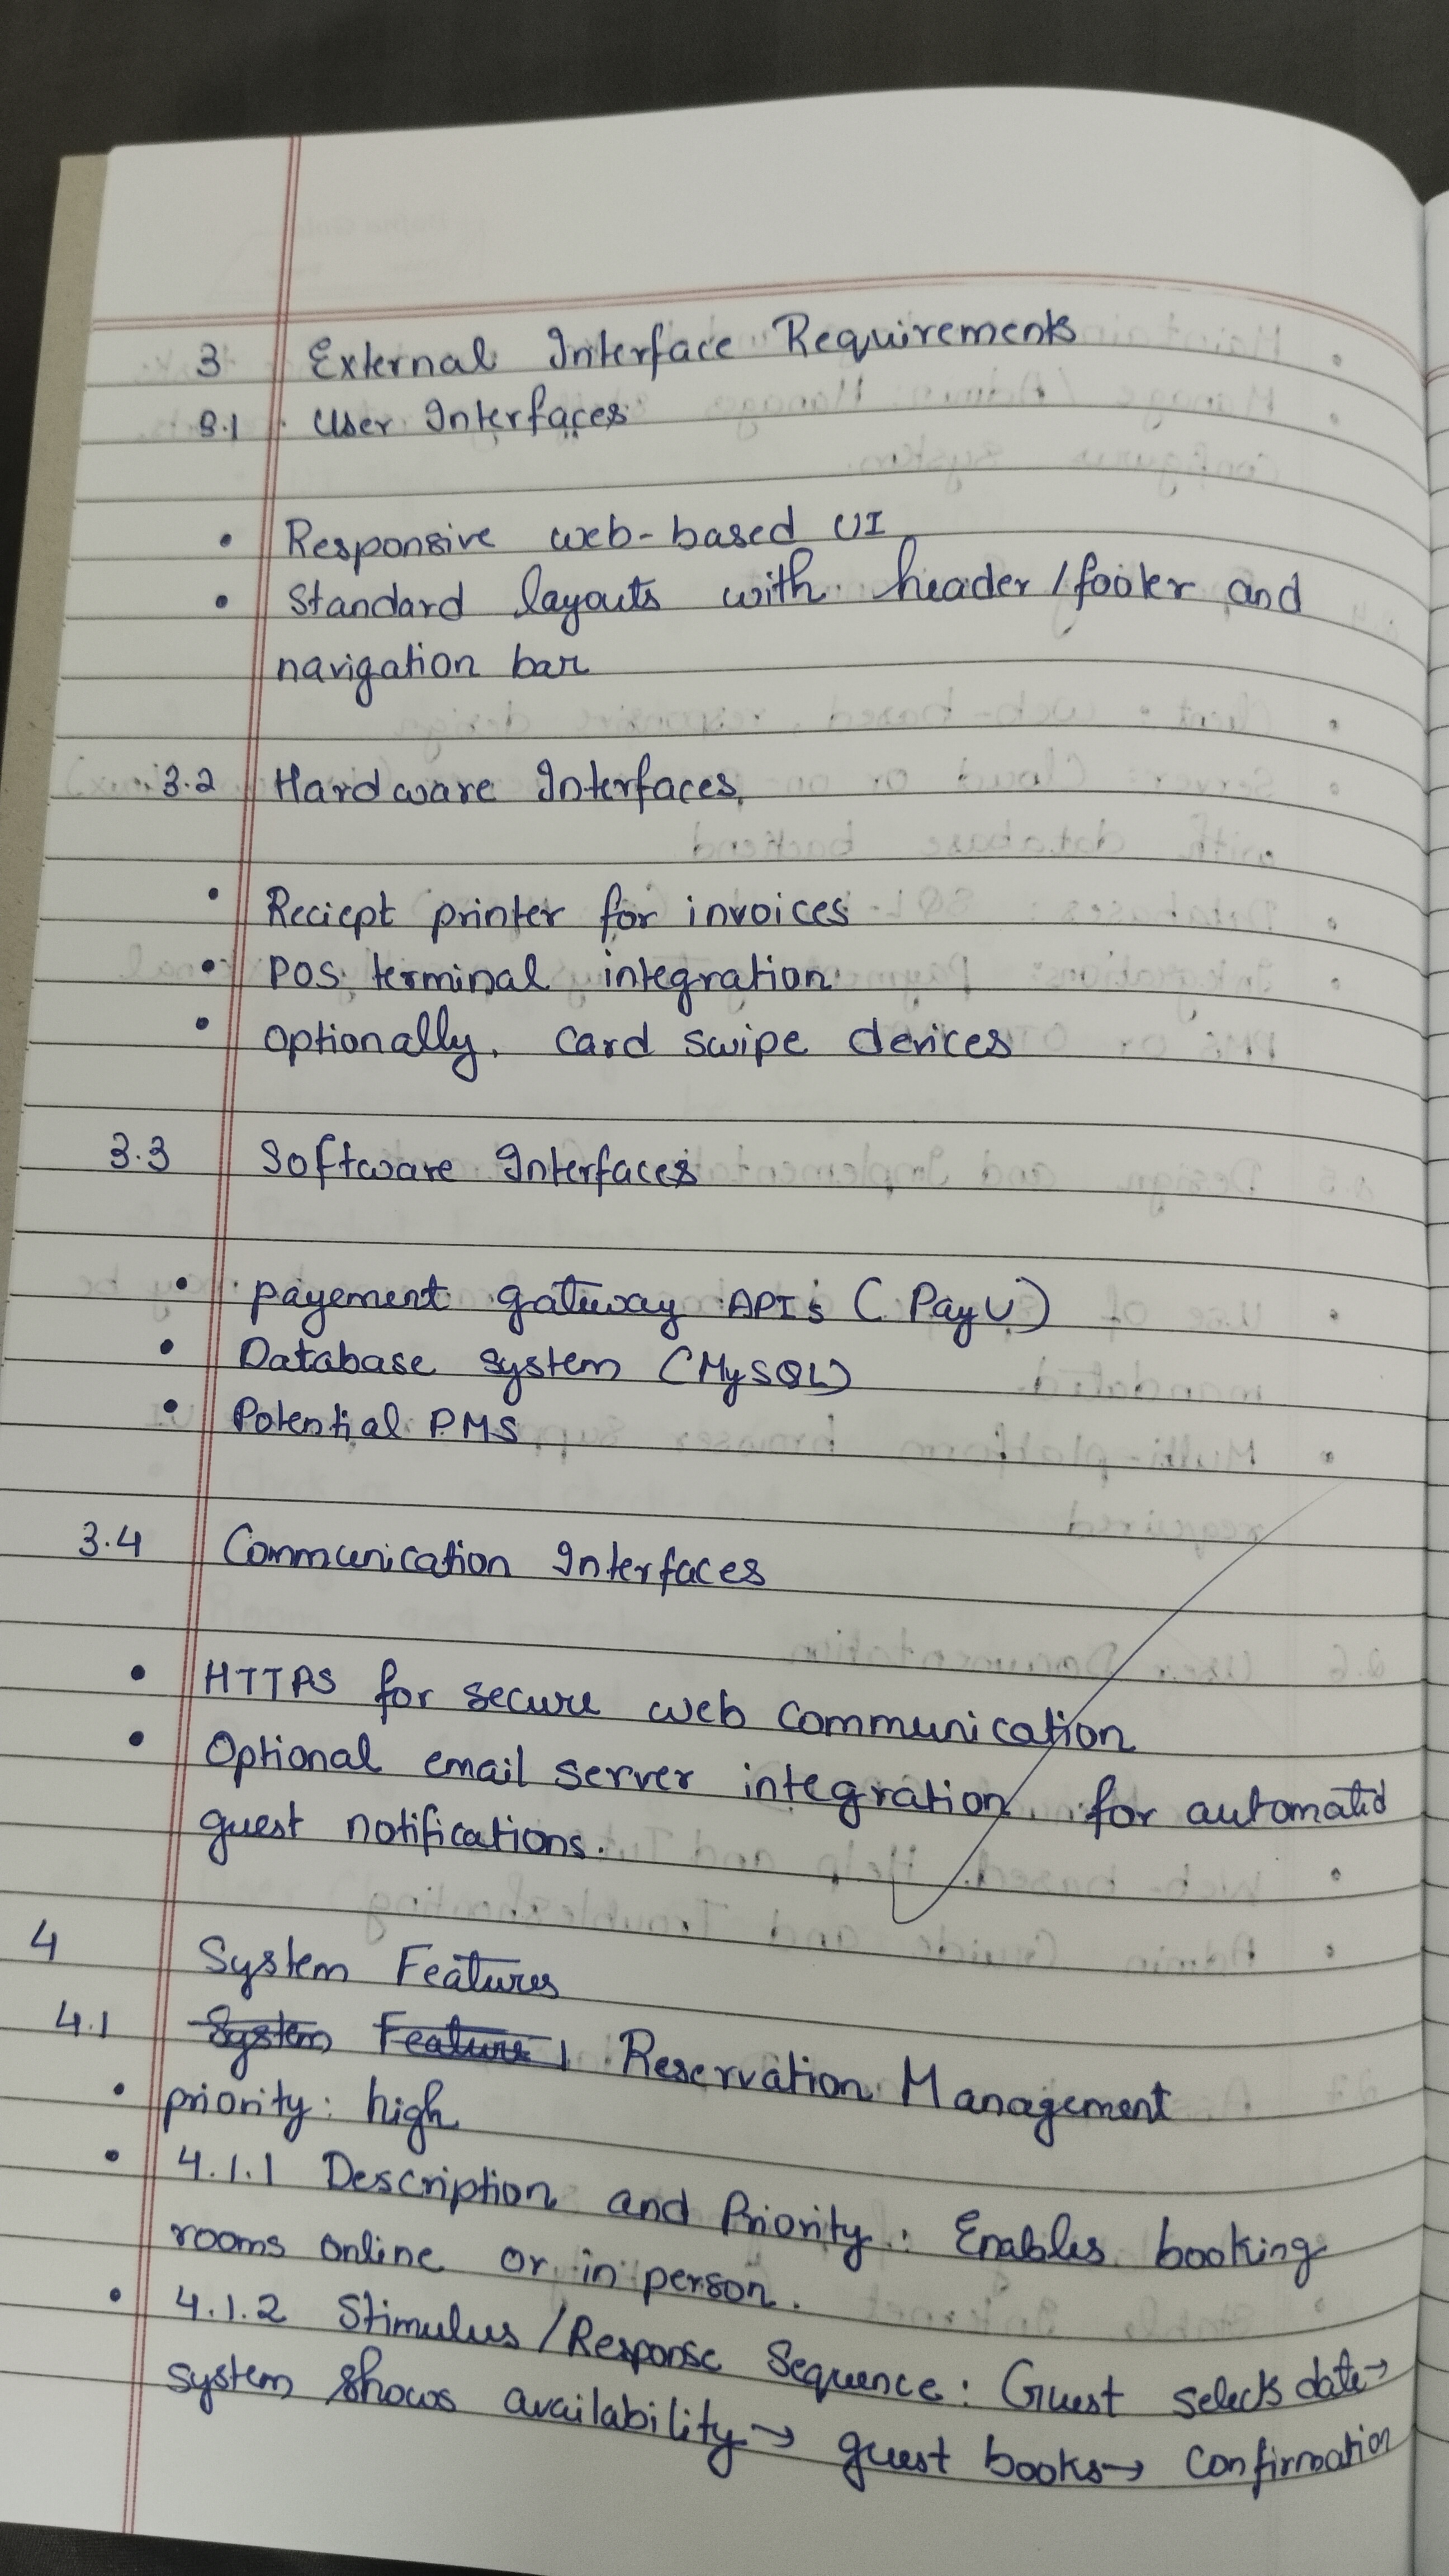 3 External Interface Requirements
3.1 User Interfaces
• Responsive web-based UI
• Standard layouts with header/footer and
navigation bar
3.2 Hardware Interfaces
• Reciept printer for invoices
• POS terminal integration
• Optionally, card swipe devices
3.3 Software Interfaces
• Payement gateway APIs (PayU)
• Database system (MySQL)
• Potential PMS
3.4 Communication Interfaces
• HTTPS for secure web communication
• Optional email server integration for automated
guest notifications.
4 System Features
4.1 System Feature 1 Reservation Management
• priority: high
• 4.1.1 Description and Priority: Enables booking
rooms online or in person.
• 4.1.2 Stimulus/Response Sequence: Guest selects date→
system shows availability→ guest books→ confirmation